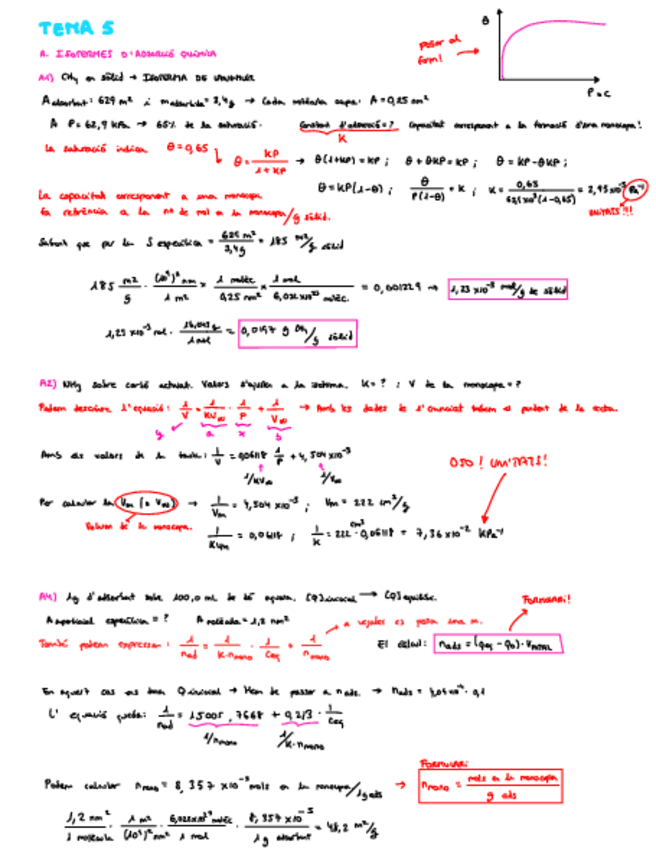 TEMA 5
θ
posar al form!
P = c
A. ISOTERMES D'ADSORCIÓ QUÍMICA
A1) CH4 en sòlid → ISOTERMA DE LANGMUIR
A adsorbent: 629 m² i m adsorbida = 3,4g → Cada molècula ocupa: A = 0,25 nm²
A P = 62,9 kPa → 65% de la saturació. Constant d'adsorció = ? Capacitat corresponent a la formació d'una monocapa!
K
La saturació indica θ = 0,65
θ = KP / 1 + KP → θ(1+KP) = KP ; θ + θKP = KP ; θ = KP - θKP ;
θ = KP(1-θ) ; θ / P(1-θ) = K ; K = 0,65 / (1-0,65) = Pa⁻¹
UNITATS!!!
La capacitat corresponent a una monocapa
fa referència a la nº de mol en la monocapa/g sòlid.
Sabent que per la S específica = 629 m² / 3,4g = 185 m²/g sòlid
185 m²/g · (10⁹)² nm / 1 m² × 1 molèc / 0,25 nm² × 1 mol / 6,022x10²³ molèc. = 0,001229 → 1,23 x10⁻³ mol/g de sòlid
1,23 x10⁻³ mol · 16,043 g / 1 mol = 0,0197 g CH4/g sòlid
A2) NH3 sobre carbó activat. Valors s'ajusten a la isoterma. K = ? i V de la monocapa = ?
Podem descriure l'equació: 1/V = 1/KV∞ · 1/P + 1/V∞ → Amb les dades de l'enunciat trobem el pendent de la recta.
y a x b
Amb els valors de la taula: 1/V = 0,06118 1/P + 4,504 x10⁻³
1/KV∞ 1/V∞
OJO! UNITATS!
Per calcular la Vm (= V∞) → 1/Vm = 4,504 x10⁻³ ; Vm = 222 cm³/g
Volum de la monocapa.
1/KVm = 0,06118 ; 1/K = 222 cm³ · 0,06118 = 7,36 x10⁻² kPa⁻¹
A4) 1g d'adsorbent sobre 100,0 mL de dió aquosa. [Q]inicial → [Q]equilibr.
FORMULARI!
A superficial específica = ? A molècula = 1,2 nm²
a vegades es posa una m.
També podem expressar: 1/nad = 1/K·nmono · 1/ceq + 1/nmono
El estad: nads = (q0 - q) · Vtotal
En aquest cas ens dona Q inicial → Hem de passar a nads. → nads = · 0,1
L'equació queda: 1/nad = 15005,7668 + 0,213 · 1/Ceq
1/nmono 1/K·nmono
FORMULARI
Podem calcular nmono = 8,357 x10⁻⁵ mols en la monocapa/1g ads → nmono = mols en la monocapa / g ads
1,2 nm² / 1 molècula · 1 m² / (10⁹)² nm² · 6,022x10²³ molèc / 1 mol · 8,357 x10⁻⁵ / 1g adsorbent = 48,2 m²/g